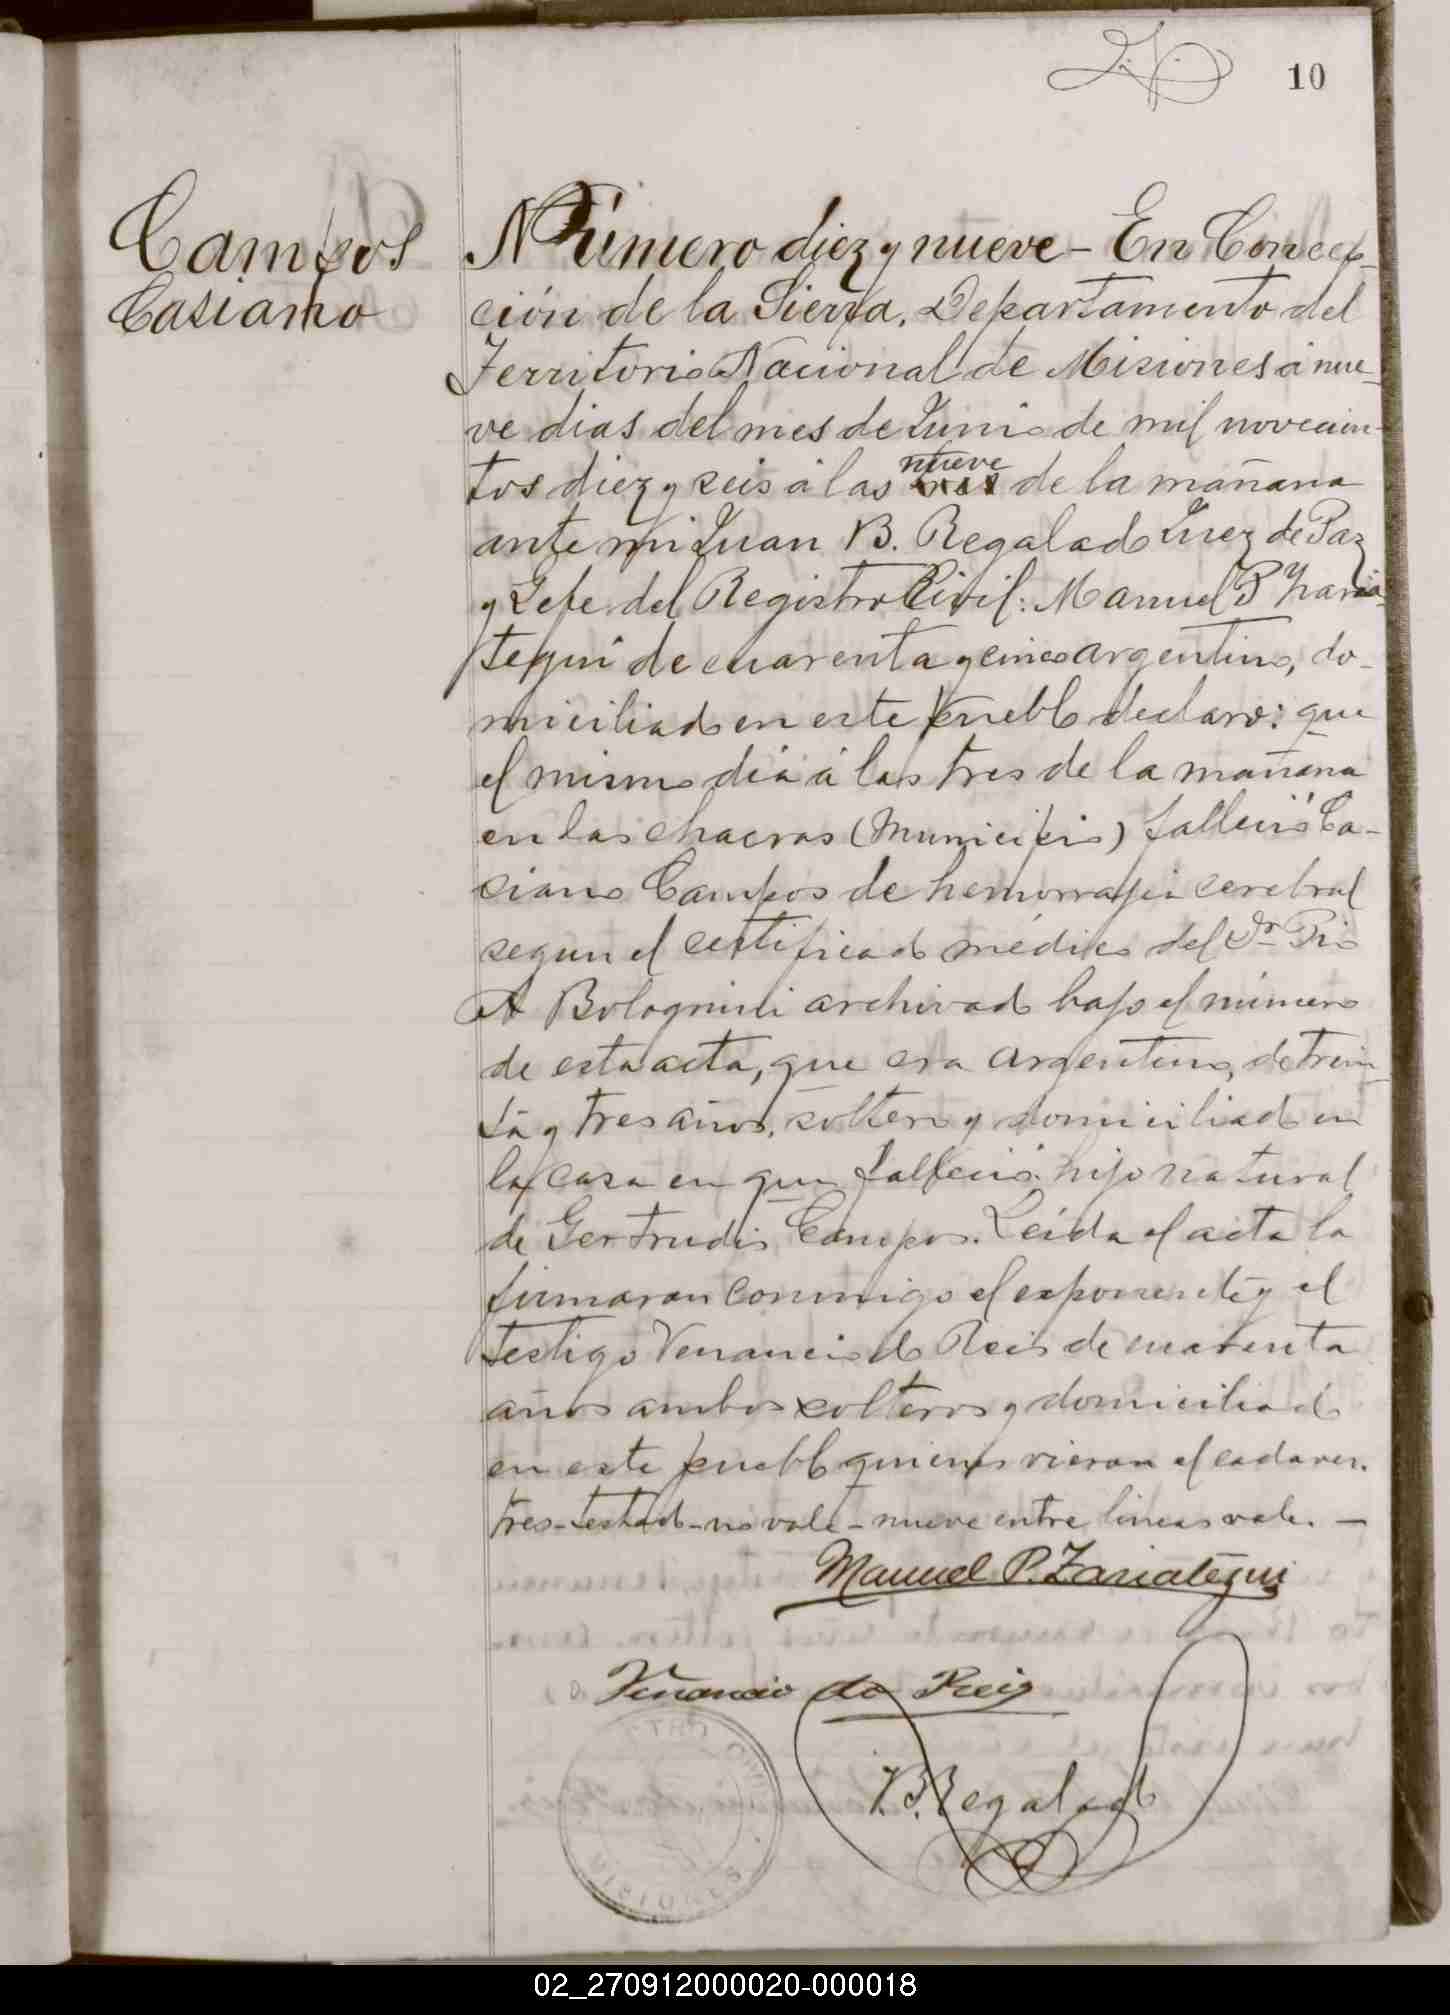 10
Campos
Casiano
Número diez y nueve - En Concep-
ción de la Sierra, Departamento del
Territorio Nacional de Misiones á nue-
ve dias del mes de Junio de mil novecien-
tos diez y seis á las tres nueve de la mañana
ante mi Juan B. Regalado Juez de Paz
y Gefe del Registro Civil: Manuel P Zaria-
tegui de cuarenta y cinco argentino, do-
miciliado en este pueblo declaro: que
el mismo dia á las tres de la mañana
en las chacras (Municipio) falleció Ca-
siano Campos de hemorragia cerebral
segun el certificado médico del Dr Pio
A Bolognini archivado bajo el número
de esta acta, que era argentino, de trein-
ta y tres años, soltero y domiciliado en
la casa en que falleció hijo natural
de Gertrudis Campos. Leida el acta la
firmaron conmigo el exponente y el
testigo Venancio do Reis de cuarenta
años ambos solteros y domiciliado
en este pueblo quienes vieron el cadaver.
tres-testado-no vale-nueve entre lineas vale. -
Manuel P. Zariategui
Venancio do Reis
J.B. Regalado
02_270912000020-000018